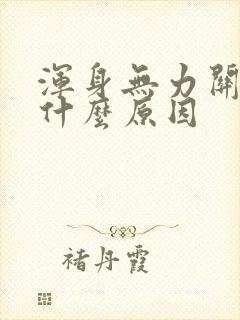 渾身無力關
什麼原因
褚丹霞